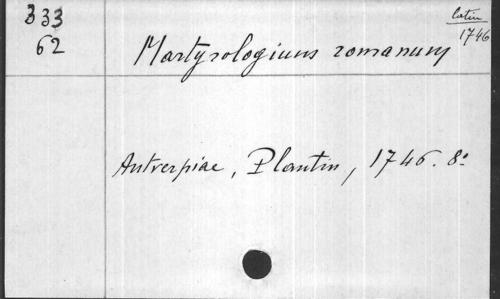 333
62
latin
1746
Martyrologium romanum
Antverpiae, Plantin, 1746. 8º